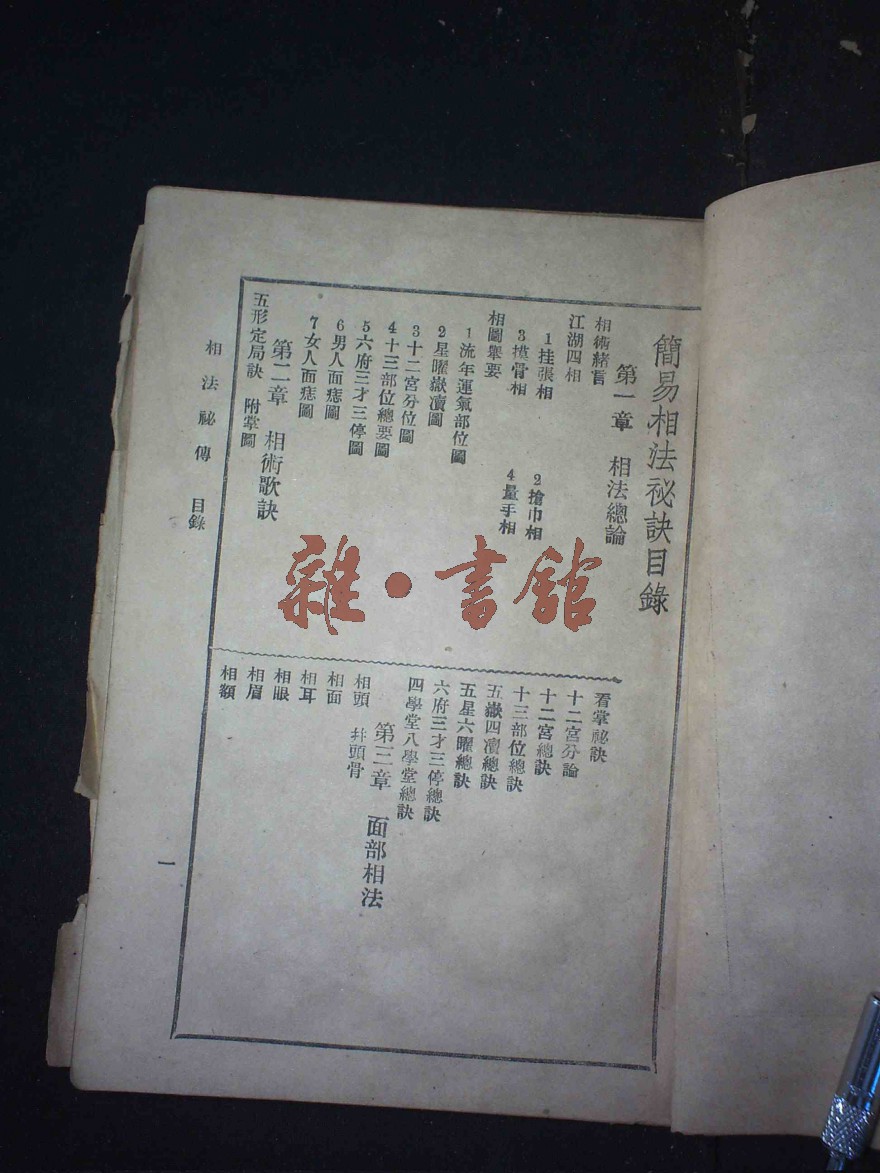 簡易相法祕訣目錄
第一章 相法總論
相術緒言
江湖四相
1挂張相 2搶巾相
3摸骨相 4量手相
相圖舉要
1流年運氣部位圖
2星曜嶽瀆圖
3十二宮分位圖
4十三部位總要圖
5六府三才三停圖
6男人面痣圖
7女人面痣圖
第二章 相術歌訣
五形定局訣 附掌圖
看掌祕訣
十二宮分論
十二宮總訣
十三部位總訣
五嶽四瀆總訣
五星六曜總訣
六府三才三停總訣
四學堂八學堂總訣
第三章 面部相法
相頭 幷頭骨
相面
相耳
相眼
相眉
相額
相法祕傳 目錄
一
雜·書館